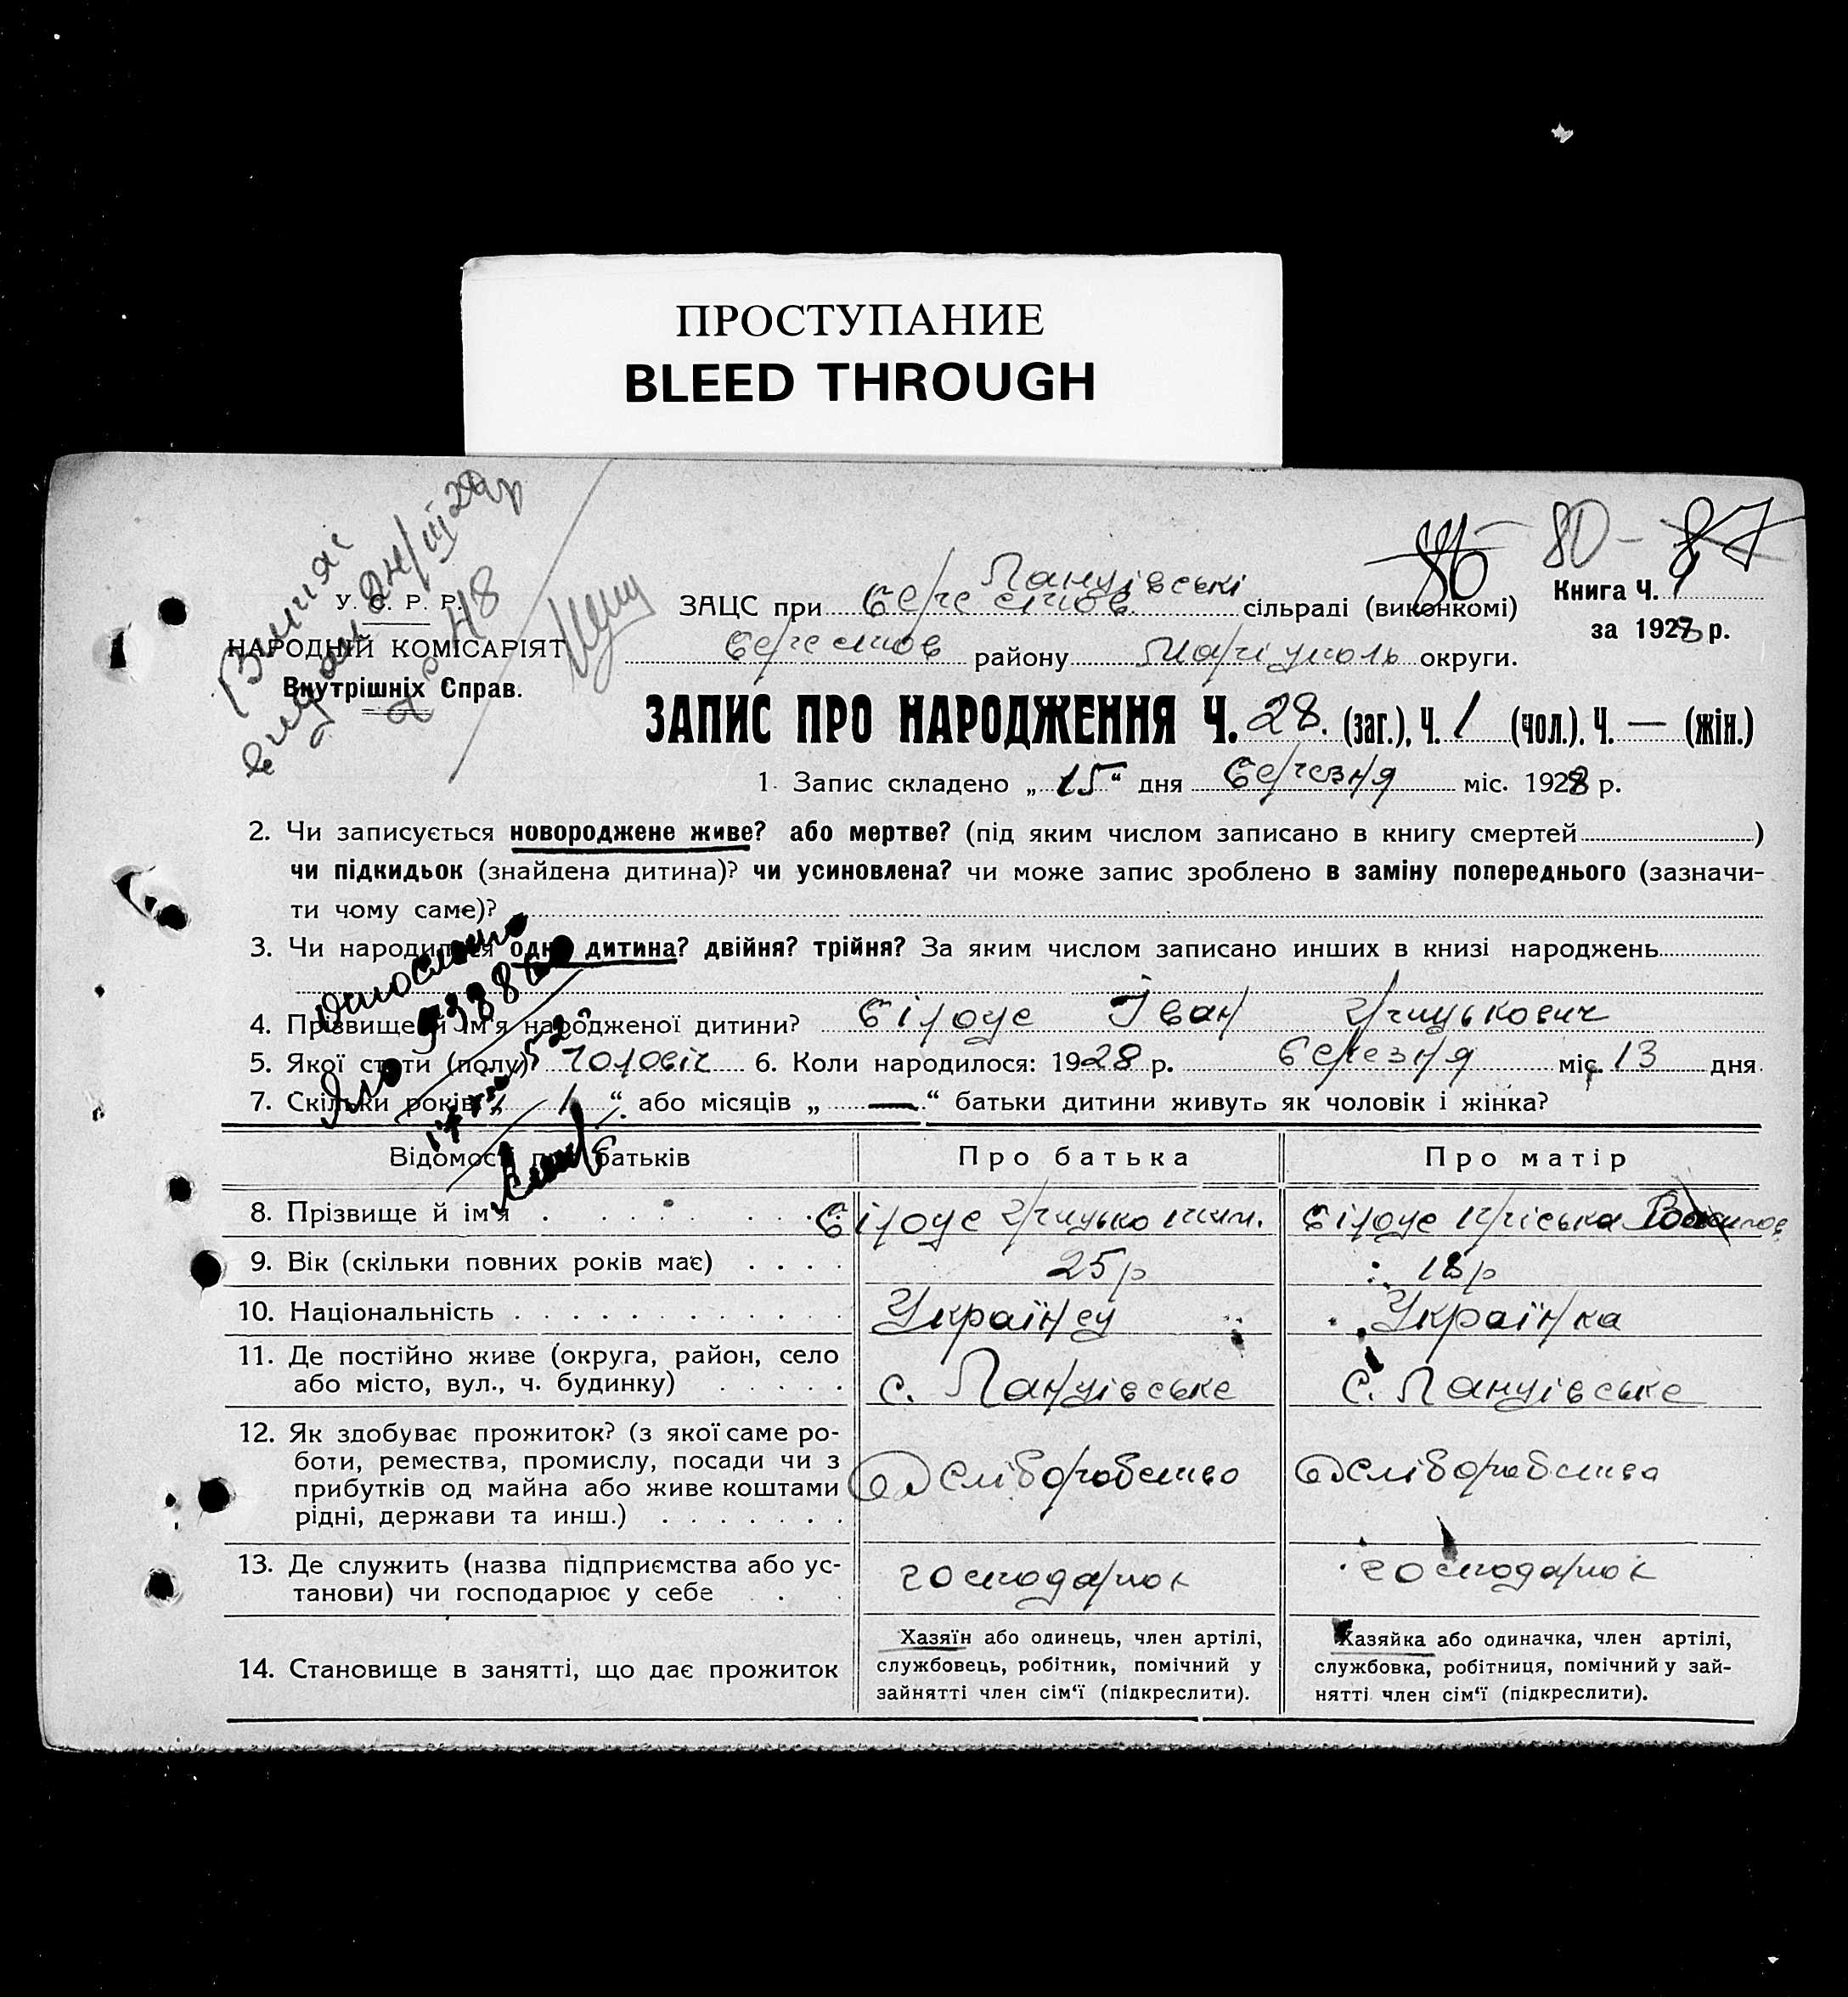 ПРОСТУПАНИЕ
BLEED THROUGH
80 – 87
У. С. Р. Р.
НАРОДНІЙ КОМІСАРІЯТ
Внутрішніх Справ.
Ланцівські
ЗАЦС при Берестов. сільраді (виконкомі)
Книга Ч. 1
за 1928 р.
Берестов району Маріуполь округи.
ЗАПИС ПРО НАРОДЖЕННЯ Ч. 28. (заг.), Ч. 1 (чол.), Ч. — (жін.)
1. Запис складено „15“ дня березня міс. 1928 р.
2. Чи записується новороджене живе? або мертве? (під яким числом записано в книгу смертей )
чи підкидьок (знайдена дитина)? чи усиновлена? чи може запис зроблено в заміну попереднього (зазначи-
ти чому саме)?
3. Чи народилася одна дитина? двійня? трійня? За яким числом записано инших в книзі народжень
4. Прізвище й ім'я народженої дитини? Білоус Іван Грицькович
5. Якої стати (полу)? чоловіч 6. Коли народилося: 1928 р. березня міс. 13 дня
7. Скільки років „ 1 “ або місяців „ — “ батьки дитини живуть як чоловік і жінка?
Відомості про батьків Про батька Про матір
8. Прізвище й ім'я Білоус Грицько Білоус Пріська
9. Вік (скільки повних років має) 25 р 18 р
10. Національність Українец Українка
11. Де постійно живе (округа, район, село
або місто, вул., ч. будинку) с. Ланцівське с. Ланцівське
12. Як здобуває прожиток? (з якої саме ро-
боти, ремества, промислу, посади чи з
прибутків од майна або живе коштами
рідні, держави та инш.)
13. Де служить (назва підприємства або ус-
танови) чи господарює у себе господарює господарює
14. Становище в занятті, що дає прожиток
Хазяїн або одинець, член артілі,
службовець, робітник, помічний у
зайнятті член сім'ї (підкреслити).
Хазяйка або одиначка, член артілі,
службовка, робітниця, помічний у зай-
нятті член сім'ї (підкреслити).